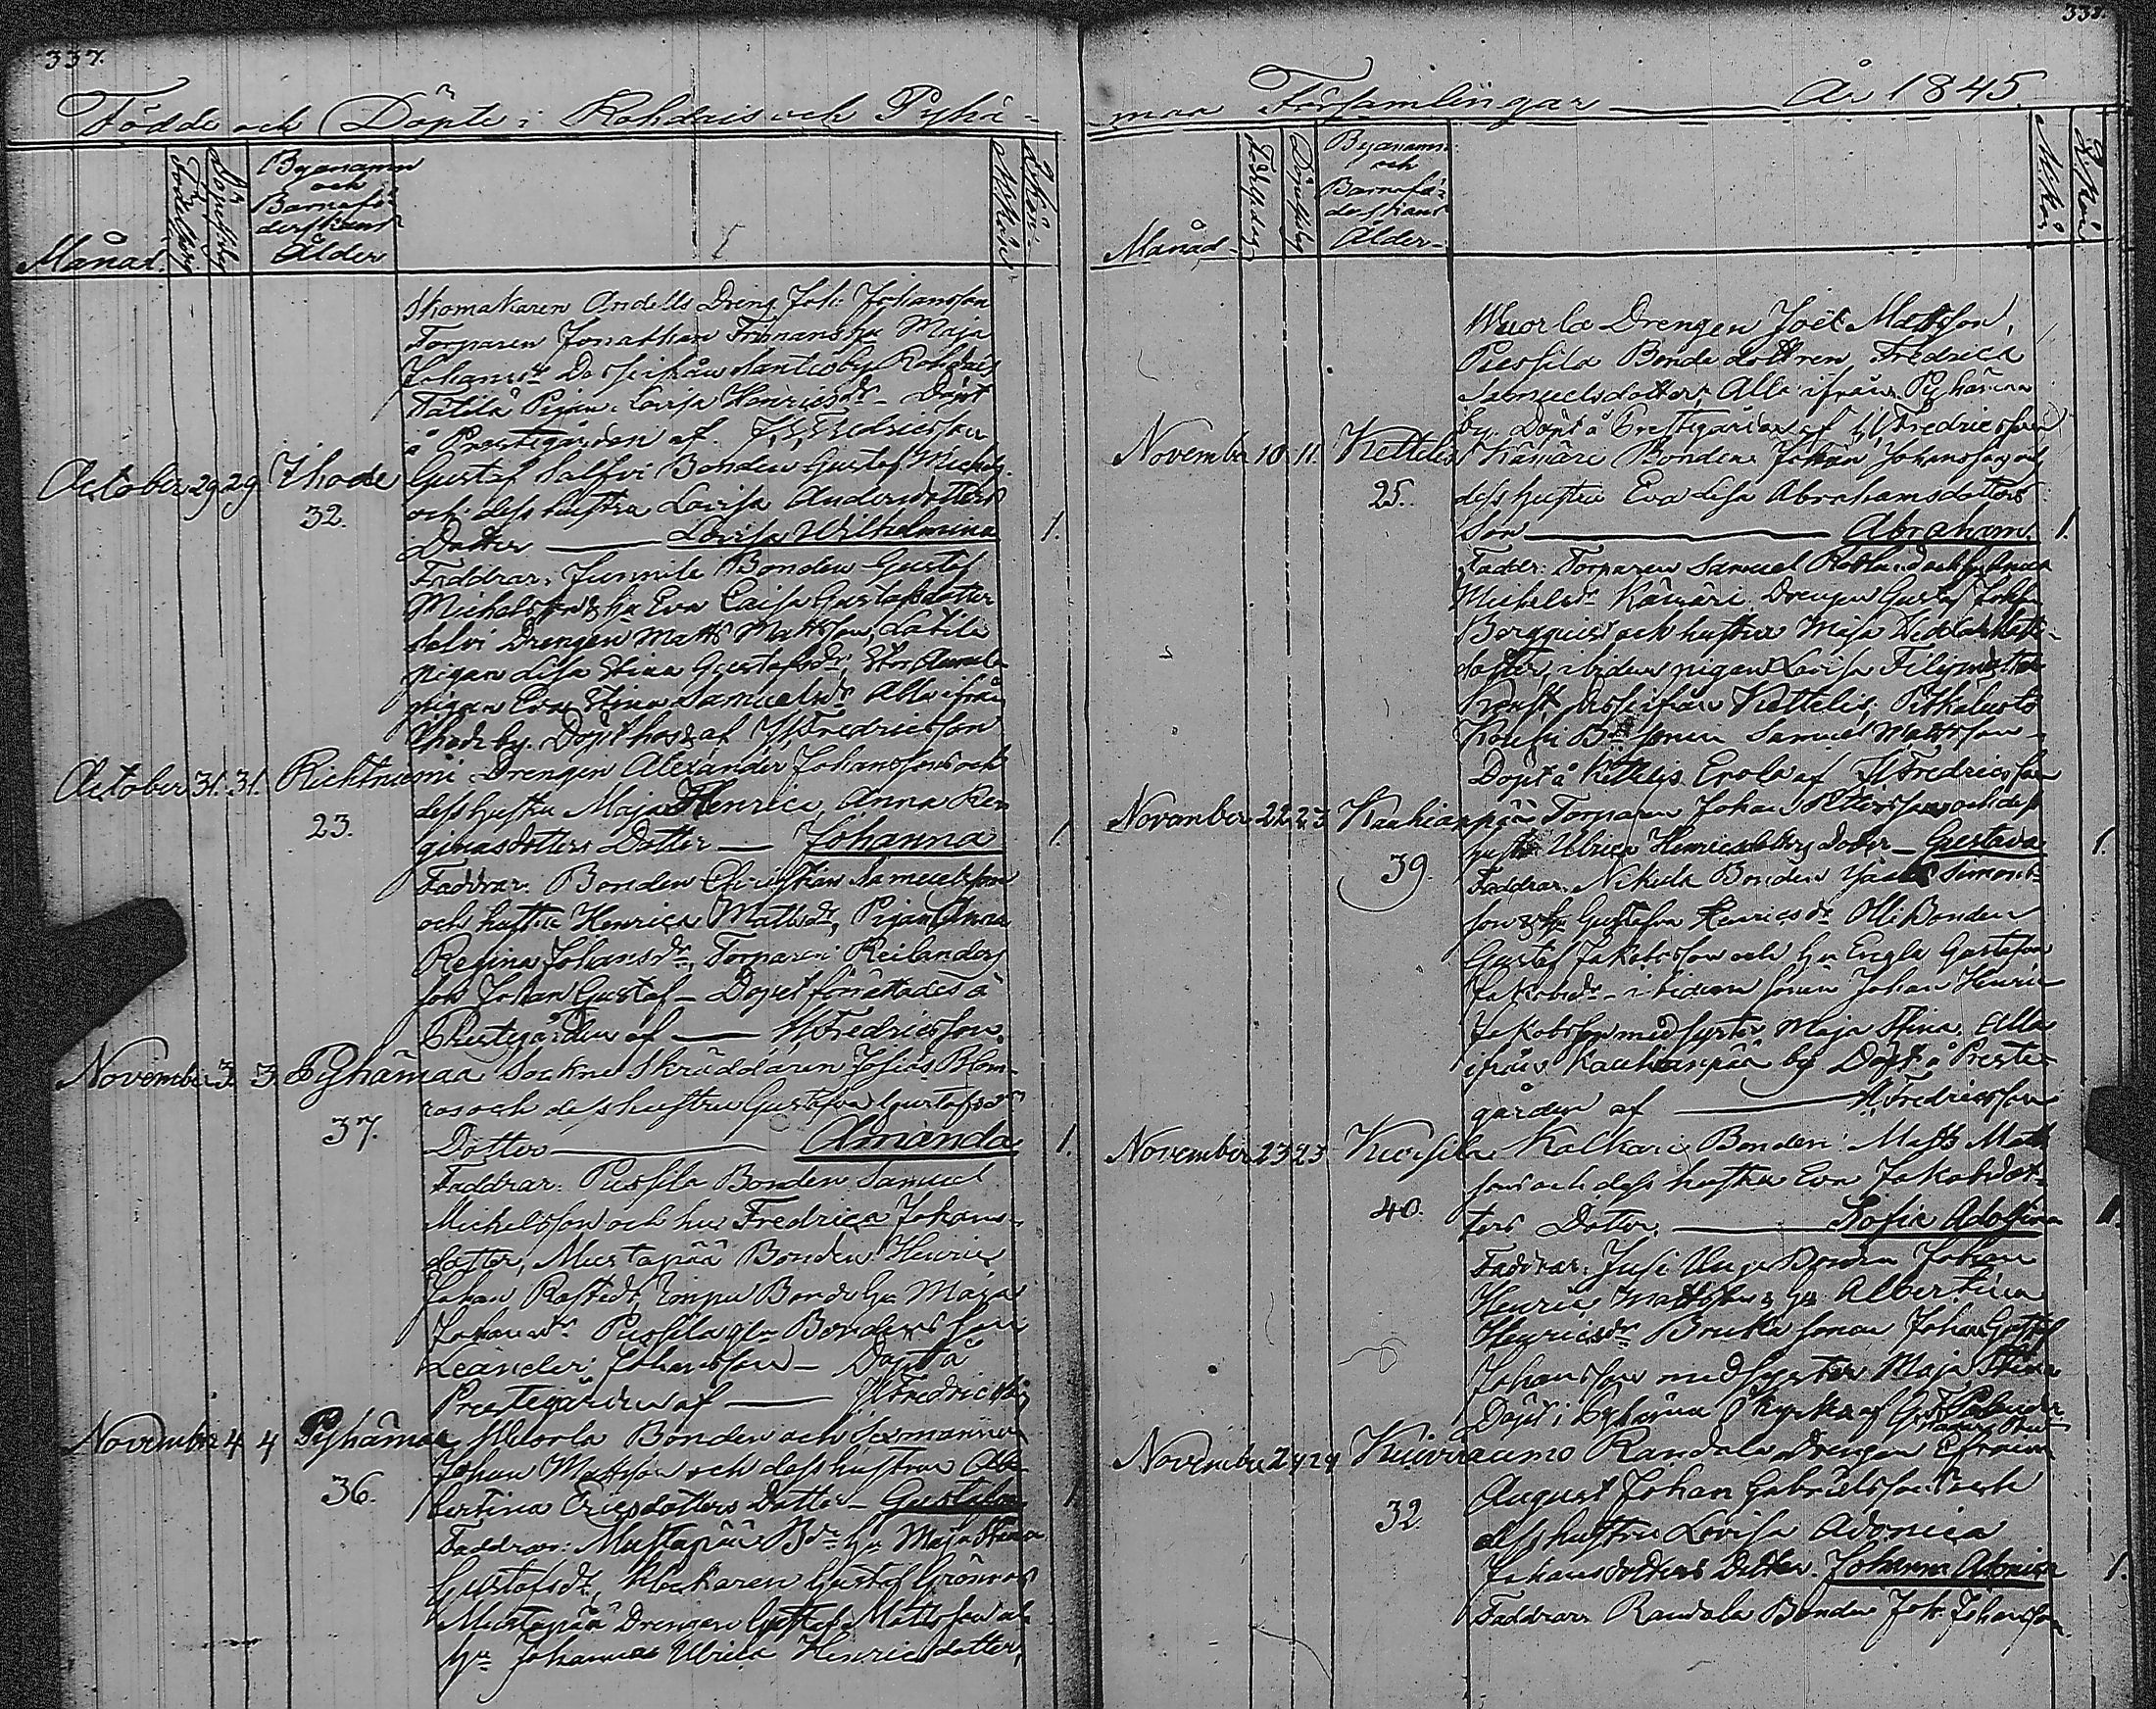 337.
Födde och Döpte i Rohdais och Pyhä-
Månad.
Födelsedag
Döpelsedag
Byanamn
och
Barnafö-
derskans
Ålder
Mankön
Qvinkön
Skomakaren Andells Dreng Joh: Johansson
Torparen Jonathan hu Maja
Johansdr Desse ifrån Santio by Rohdais
Tätilä Pigan Lovisa Henricsdr - Döpt
å Prestegården af Fredricsson
October 29 29 Ihode Gustaf Salfvi Bonden Gustaf Michels-
32. och dess hustru Lovisa Andersdotters
Dotter — Lovisa Wilhelmina 1.
Faddrar: Junnila Bonden Gustaf
Michelsson & hu Eva Caisa Gustafsdotter
Salvi Drengen Matts Mattsson, Latila
pigan Lisa Stina Gustafsdr
pigan Eva Stina Samuelsdr Alla ifrån
Ihode by. Döpt hos af Fredricsson
October 31. 31. Richtniemi Drengen Alexander Johanssons och
23. dess hustru Maja Henrica Anna Re-
ginasdotters Dotter — Johanna 1.
Faddrar. Bonden Christian Samuelsson
och hustru Henrica Mattsdr, Pigan Anna
Regina Johansdr, Torparen Reilanders
son Johan Gustaf - Dopet förättades å
Prestegården af — Fredricsson.
November 3. 3. Pyhämaa Sockne Skräddaren Josias Blom-
37. ros och dess hustru Gustafva Gustafsdrs
Dotter — Amanda 1.
Faddrar: Pussila Bonden Samuel
Michelsson och hu Fredrica Johans-
dotter, Mustapää Bonden Henric
Johan Rostedt, Bonde hu Maja
Johansdr Pussila gla Bondens son
Leander Johansson - Döpt å
Prestegården af — Fredricsson
November 4 4 Pyhämaa Wuorla Bonden och Sexmannen
36. Johan Mattsson och dess hustru Al-
bertina Ericsdotters Dotter - Gustafva
Faddrar: Mustapää Bdn hu Maja Stina
Gustafsdr, Klockaren Gustaf Grönroos
Mustapää Drengen Gustaf Mattsson och
hu Johanna Ulrica Henricsdotter,
338.
maa Församlingar — År 1845.
Månad
Födelsedag
Döpelsedag
Byanamn
och
Barnafö-
derskans
Ålder
Mankön
Qvinkön
Wuorla Drengen Joel Mattsson,
Pussila Bonde dottren Fredrica
Samuelsdotter, Alla ifrån Pyhämaa
by. Döpt å Prestegården af Fredricsson
November 10. 11. Kettelis Kämäri Bonden Johan Johansson och
25. dess hustru Eva Lisa Abrahamsdotters
Son — Abraham. 1.
Faddr: Torparen Samuel
Michelsdr Kämäri Drengen Gustaf
Bergquist och hustru Maja
dotter, ibidem pigan Lovisa Filipsdotter
desse ifrån Kettelis, Pitkeluoto
sonen Samuel Mattsson -
Döpt å Kettelis Erola af Fredricsson
November 22 23 Kauhianpää Torparen Johan Pettersson och dess
39. hustru Ulrica Henricsdotters Dotter - Gustava 1.
Faddrar. Nikula Bonden Simons-
son & hu Gustafva Henricsdr Olli Bonden
Gustaf Jakobsson och hu Engla Gustafva
Jakobsdr - ibidem sonen Johan Henric
Jakobsson med syster Maja Stina, Alla
ifrån Kauhianpää by Döpt å Preste-
gården af — Fredricsson
November 23 23 Kuivsila Kalkari Bonden Matts Matts-
40. sons och dess hustru Eva Jakobsdot-
ters Dotter. — Sofia Adolfina 1.
Faddrar: Bonden Johan
Henric Mattsson & hu Albertina
Henricsdr sonen Johan Gustaf
Johansson med syster Maja Stina
Döpt i Pyhämaa Kyrka af
November 24 24 Kuivraumo Randala Drengen Efraim
32. August Johan Gabrielssons och
dess hustru Lovisa Adonica
Johansdotters Dotter. Johanna Adonica 1.
Faddrar. Randala Bonden Joh. Johansson